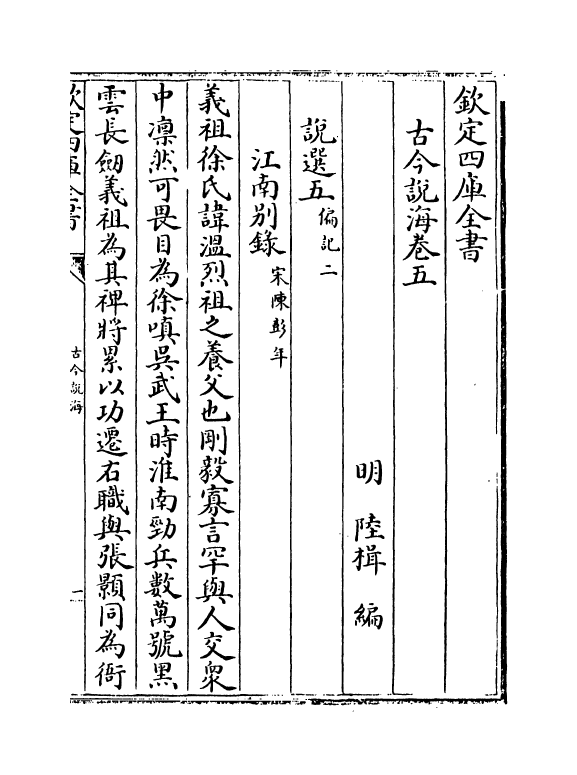 欽定四庫全書
古今說海卷五
明 陸楫 編
說選五 偏記二
江南別錄 宋陳彭年
義祖徐氏諱溫烈祖之養父也剛毅寡言罕與人交衆
中凛然可畏目為徐嗔吳武王時淮南勁兵數萬號黑
雲長劒義祖為其裨將累以功遷右職與張顥同為衙
欽定四庫全書
古今說海
一